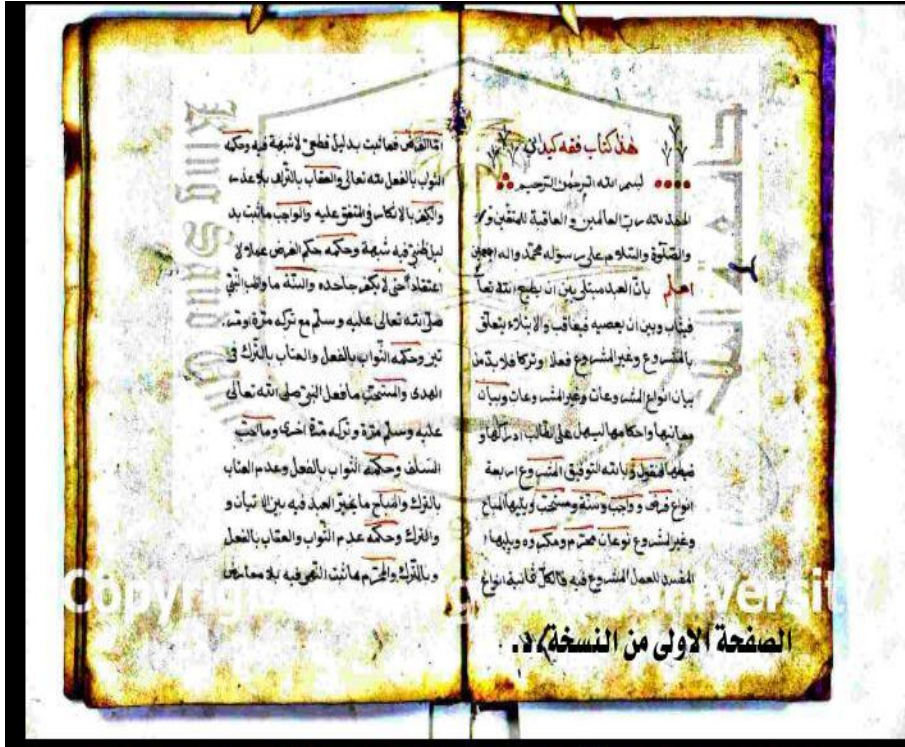 هذا كتاب فقه كيداني
بسم الله الرحمن الرحيم
الحمد لله رب العالمين والعاقبة للمتقين
والصلوة والسلام على رسوله محمد واله اجمعين
اعلم بان العبد مبتلى بين ان يطيع الله تعا
فيثاب وبين ان يعصيه فيعاقب والابتلاء يتعلق
بالمشروع وغير المشروع فعلا وتركا فلا بد من
بيان انواع المشروعات وغير المشروعات وبيان
معانيها واحكامها ليسهل على الطالب ادراكها و
ضبطها فنقول وبالله التوفيق المشروع اربعة
انواع فرض وواجب وسنة ومستحب ويليها المباح
وغير المشروع نوعان محرم ومكروه ويليها
المفسد للعمل المشروع فيه فالكل ثمانية انواع
الصفحة الاولى من النسخة
اما الفرض فما ثبت بدليل قطعي لا شبهة فيه وحكمه
الثواب بالفعل لله تعالى والعقاب بالترك بلا عذر
والكفر بالانكار في المتفق عليه والواجب ما ثبت بد
ليل ظني فيه شبهة وحكمه حكم الفرض عملا لا
اعتقادا حتى لا يكفر جاحده والسنة ما واظب النبي
صلى الله تعالى عليه وسلم مع تركه مرة او مر
تين وحكمه الثواب بالفعل والعتاب بالترك في
الهدى والمستحب ما فعل النبي صلى الله تعالى
عليه وسلم مرة وتركه مرة اخرى وما احب
السلف وحكمه الثواب بالفعل وعدم العتاب
بالترك والمباح ما يخير العبد فيه بين الاتيان و
والترك وحكمه عدم الثواب والعقاب بالفعل
وبالترك والمحرم ما ثبت النهي فيه بلا معارض
جامعة الملك
King Saud
Copyright
University